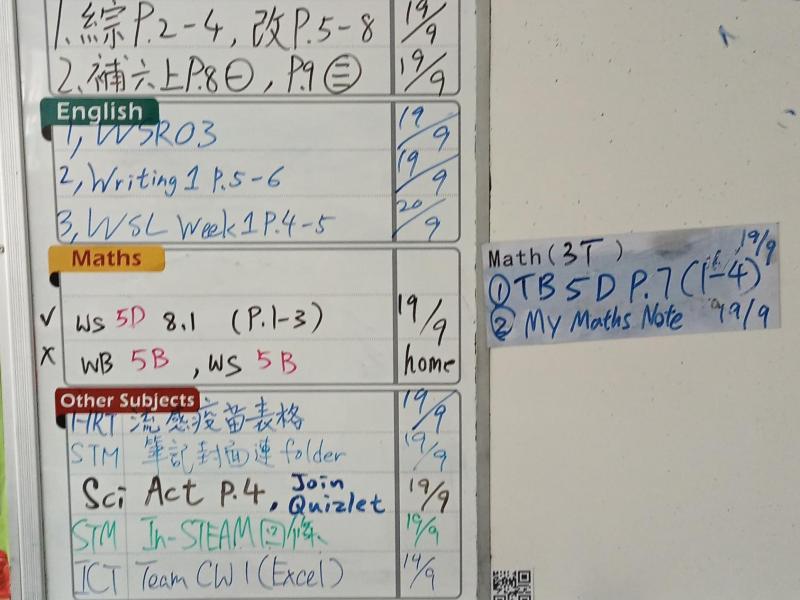 1. 綜P.2-4, 改P.5-8 19/9
2. 補六上P.8㊀, P.9㊂ 19/9
English
1, WSR03 19/9
2, Writing 1 P.5-6 19/9
3, WSL Week 1 P.4-5 20/9
Maths
✓ WS 5D 8.1 (P.1-3) 19/9
x WB 5B, WS 5B home
Other Subjects
HRT 流感疫苗表格 19/9
STM 筆記封面連folder 19/9
Sci Act P.4, Join Quizlet 19/9
STM In-STEAM 19/9
ICT Team CW 1 (Excel) 14/9
Math (3T) 19/9
① TB 5D P.7 (1-4)
② My Maths Note 19/9